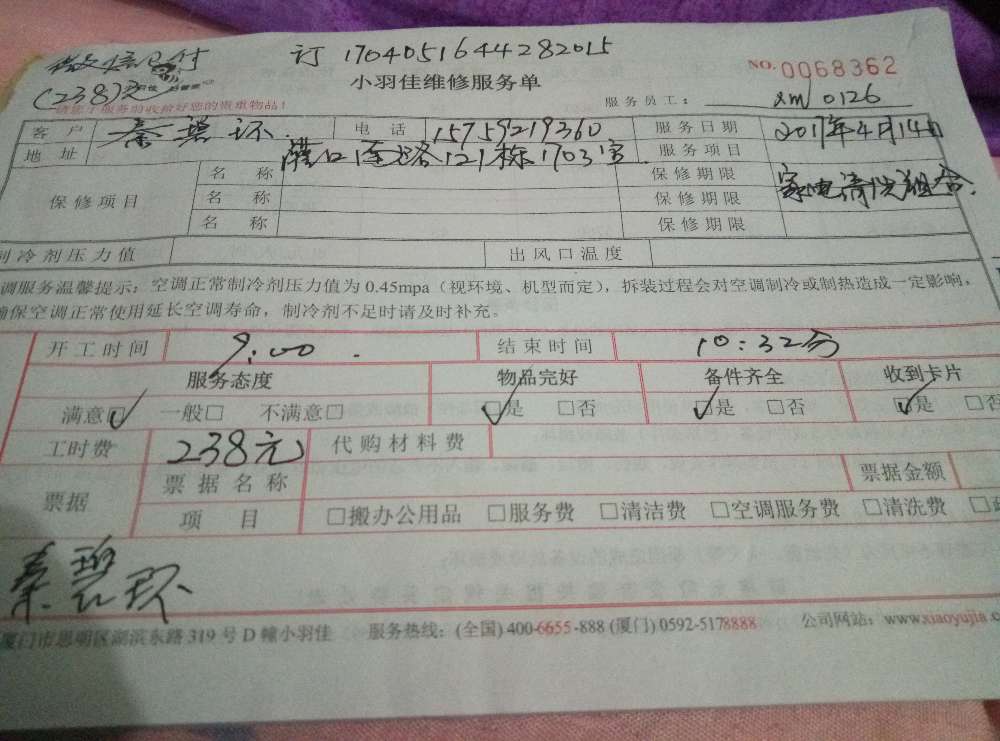 微信已付 订 1704051644282015
(238)元 小羽佳维修服务单 NO.0068362
请您于服务前收藏好您的贵重物品! 服务员工: xm 0126
客户 秦碧环 电话 15759219360 服务日期 2017年4月14日
地址 灌口 路121栋1703室 服务项目
保修项目 名称 保修期限 家电清洗组合
名称 保修期限
名称 保修期限
制冷剂压力值 出风口温度
调服务温馨提示:空调正常制冷剂压力值为0.45mpa(视环境、机型而定),拆装过程会对空调制冷或制热造成一定影响,
确保空调正常使用延长空调寿命,制冷剂不足时请及时补充。
开工时间 9:00 结束时间 10:32分
服务态度 物品完好 备件齐全 收到卡片
满意☑ 一般□ 不满意□ ☑是 □否 ☑是 □否 ☑是 □否
工时费 238元 代购材料费
票据 票据名称 票据金额
项目 □搬办公用品 □服务费 □清洁费 □空调服务费 □清洗费
秦碧环
厦门市思明区湖滨东路319号D幢小羽佳 服务热线:(全国)400-6655-888(厦门)0592-5178888 公司网站:www.xiaoyujia.c